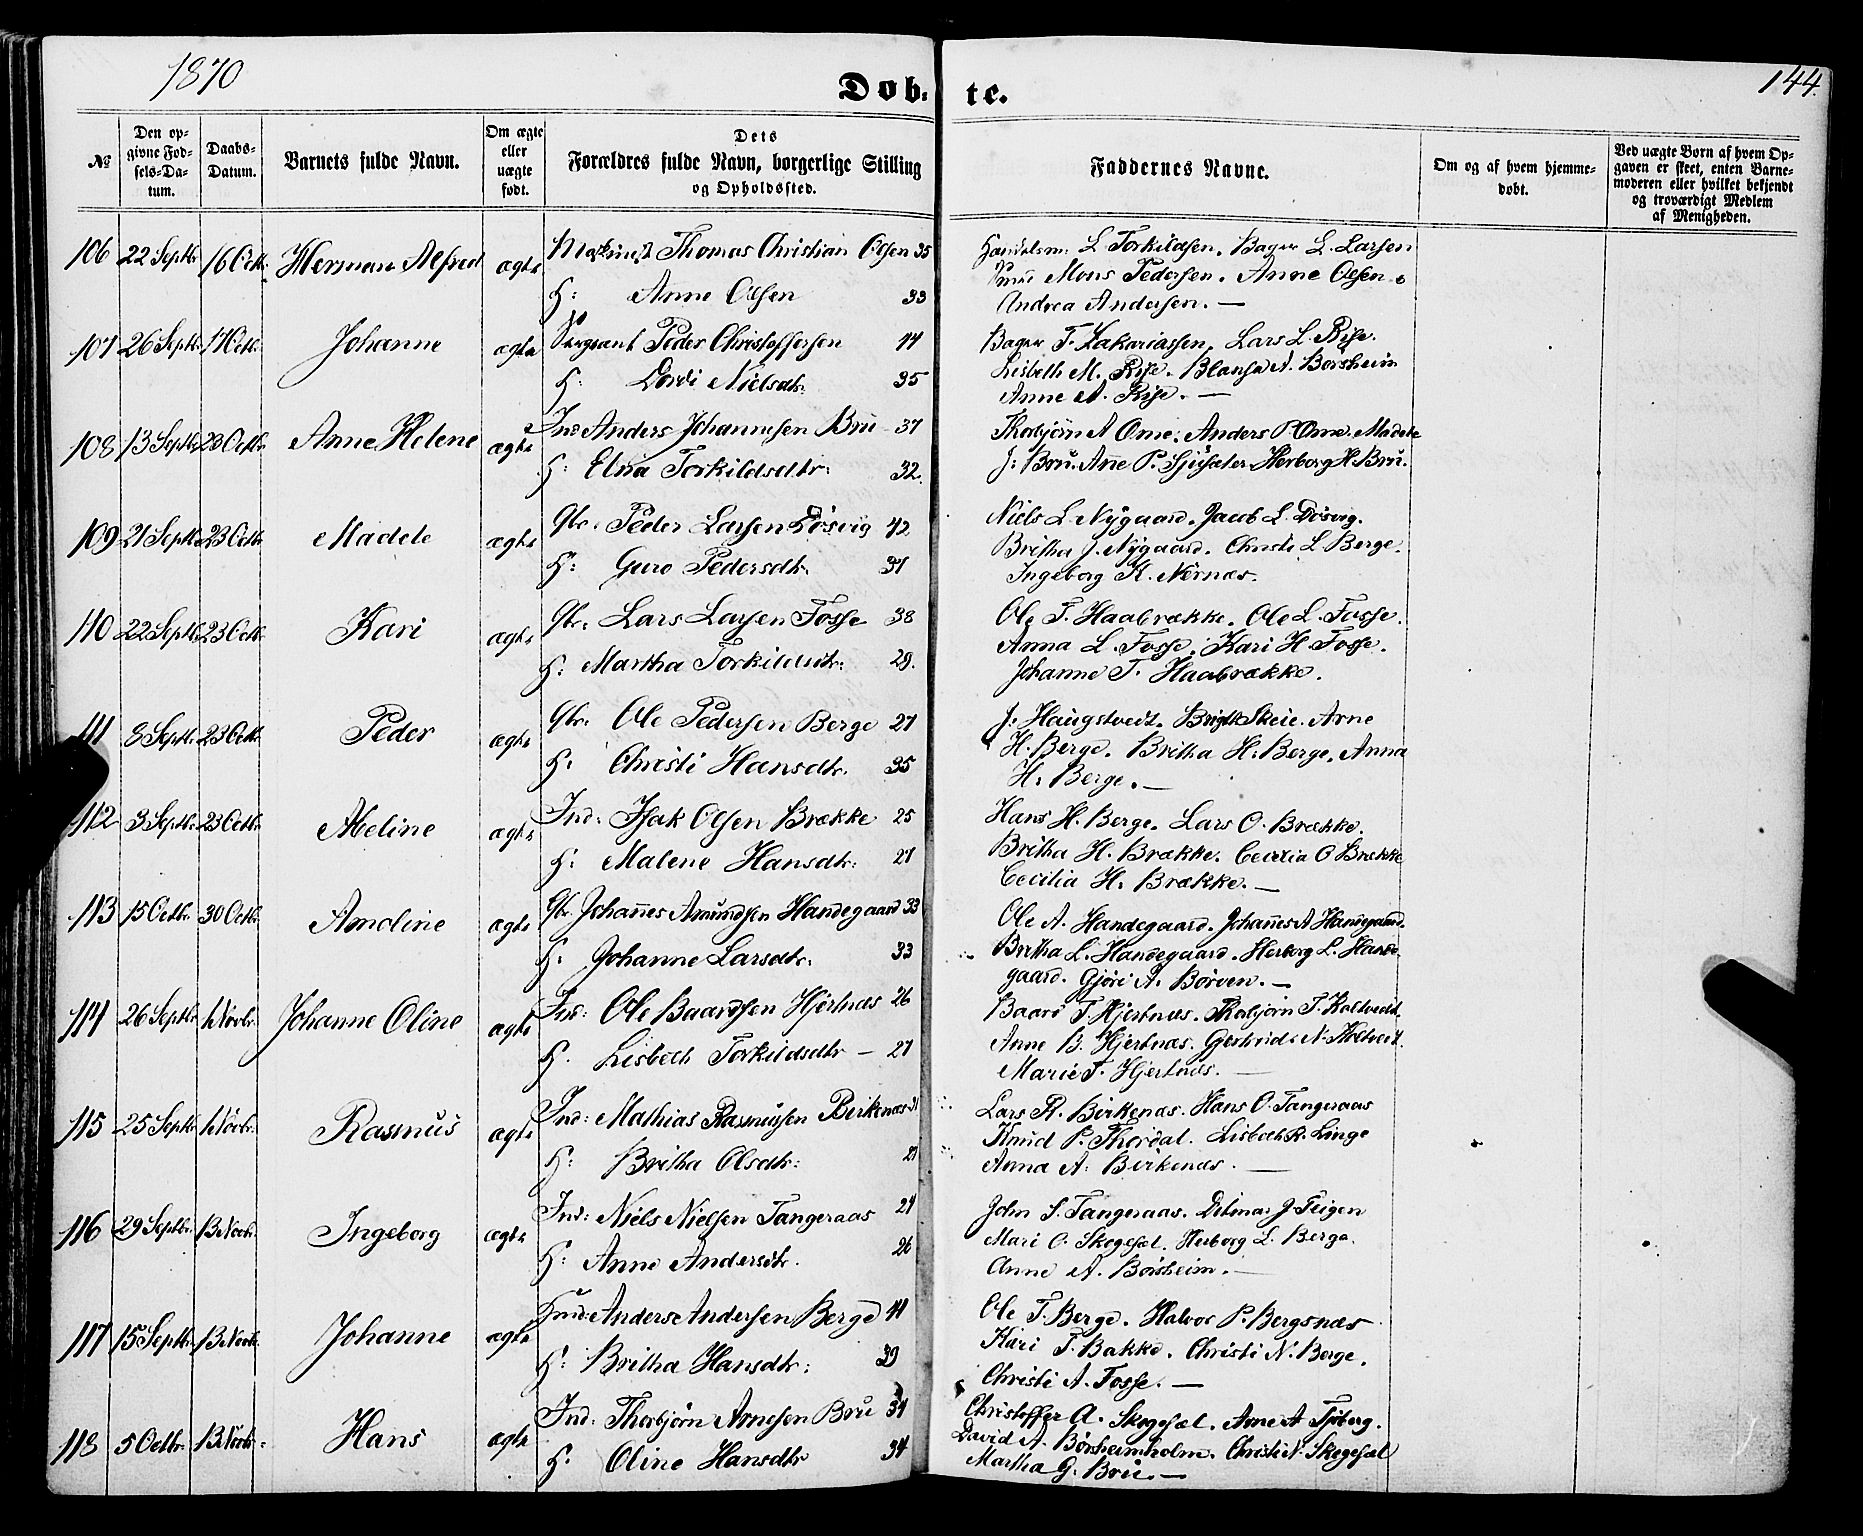 1870
144.
Døb: te.
№
Den opgivne Fødsels-Datum.
Daabs-Datum.
Barnets fulde Navn.
Om ægte eller uægte født.
Dets Forældres fulde Navn, borgerlige Stilling og Opholdssted.
Faddernes Navne.
Om og af hvem hjemmedøbt.
Ved uægte Børn af hvem Opgaven er skeet, enten Barnemoderen eller hvilket bekjendt og troværdigt Medlem af Menigheden.
106 22 Septbr. 16 Octb. Herman Alfred ægte Maskinist Thomas Christian Olsen 35
H: Anne Olsen 33
L. Torkildsen. Bager L. Larsen
Smed Mons Pedersen. Anne Olsen.
Andrea Andersen. —
107 26 Septbr. 17 Octb. Johanne ægte Sergeant Peder Christoffersen 44
H: Dordi Nielsdtr. 35
Bager T. Zakariassen. Lars L. Rise.
Lisbeth M. Rise. A. Børsheim
Anne A. Rise. —
108 13 Septbr. 23 Octbr. Anne Helene ægte Ind: Anders Johannesen Bru 37
H: Elna Torkildsdtr: 32.
Thorbjørn A Ome. Anders P. Ome. Madele
J: Bru. Anne P. Sjusæter. Herborg H. Bru.
109 21 Septbr. 23 Octb. Madele ægte Gbr. Peder Larsen Døsvig 42
H: Guro Pedersdtr. 37
Niels L. Nygaard. Jacob L. Døsvig.
Britha J. Nygaard. Christi L. Berge.
Ingeborg K. Nernæs.
110 22 Septbr. 23 Octb. Kari ægte Gbr. Lars Larsen Fosse 38
H: Martha Torkildsdtr: 29.
Ole T. Haabrække. Ole L. Fosse.
Anna L. Fosse. Kari H. Fosse.
Johanne T. Haabrække.
111 8 Septbr. 23 Octb. Peder ægte Gbr. Ole Pedersen Berge 27
H: Christi Hansdtr. 35
J. Haugstvedt. Skeie. Arne
H. Berge. Britha H. Berge. Anna
H. Berge. —
112 3 Septbr. 23 Octb. Abeline ægte Ind: Isak Olsen Brække 25
H: Malene Hansdtr: 27
Hans H. Berge. Lars O. Brække.
Britha H. Brække. Cecilia O Brække
Cecilia H. Brække. —
113 15 Octbr. 30 Octb. Amoline ægte Gbr. Johanes Amundsen Handegaard 33
H: Johanne Larsdtr. 33
Ole A. Handegaard. Johanes A Handegaard.
Britha L. Handegaard. Herborg L. Hande-
gaard. Gjøri A. Børven. —
114 26 Septbr. 1 Novbr. Johanne Oline ægte Ind: Ole Baardsen Hjertnæs 26
H. Lisbeth Torkildsdtr — 27
Baard T. Hjertnæs. Thorbjørn T. Kaltvedt.
Anne B. Hjertnæs. Gertrude N.
Marie T. Hjertnæs. —
115 25 Septbr. 1 Novbr. Rasmus ægte Ind: Mathias Rasmusen Birkenæs 31
H: Britha Olsdtr: 27
Lars R. Birkenæs. Hans O. Tangeraas
Knud P. Thordal. Lisbeth R. Linge
Anna A. Birkenæs. —
116 29 Septbr. 13 Novbr. Ingeborg ægte Ind: Niels Nielsen Tangeraas 24
H: Anne Andersdtr. 26
John S. Tangeraas. Ditmar J. Teigen
Mari O. Skogesæl. Herborg L. Berge.
Anne A. Børsheim. —
117 15 Septbr. 13 Novbr. Johanne ægte Huusm: Anders Andersen Berge 41
H: Britha Hansdtr: 39
Ole T. Berge. Halvor P. Bergsnæs
Kari T. Bakke. Christi N. Berge.
Christi A. Fosse. —
118 5 Octbr. 13 Novbr. Hans ægte Ind: Thorbjørn Arnesen Bru 34
H. Oline Hansdtr 34
Christoffer A. Skogesæl. Arne A Tjøberg.
David A. Børsheimholm. Christi N. Skogesæl
Martha G. Bru. —